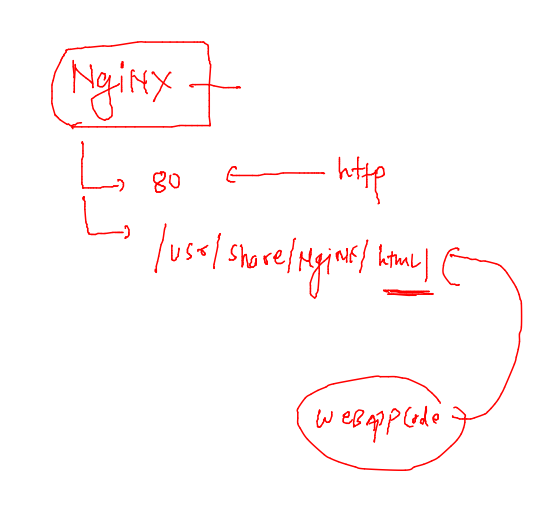 NgiNX
80 http
/usr/share/NgiNX/html/
WEBAPPCode